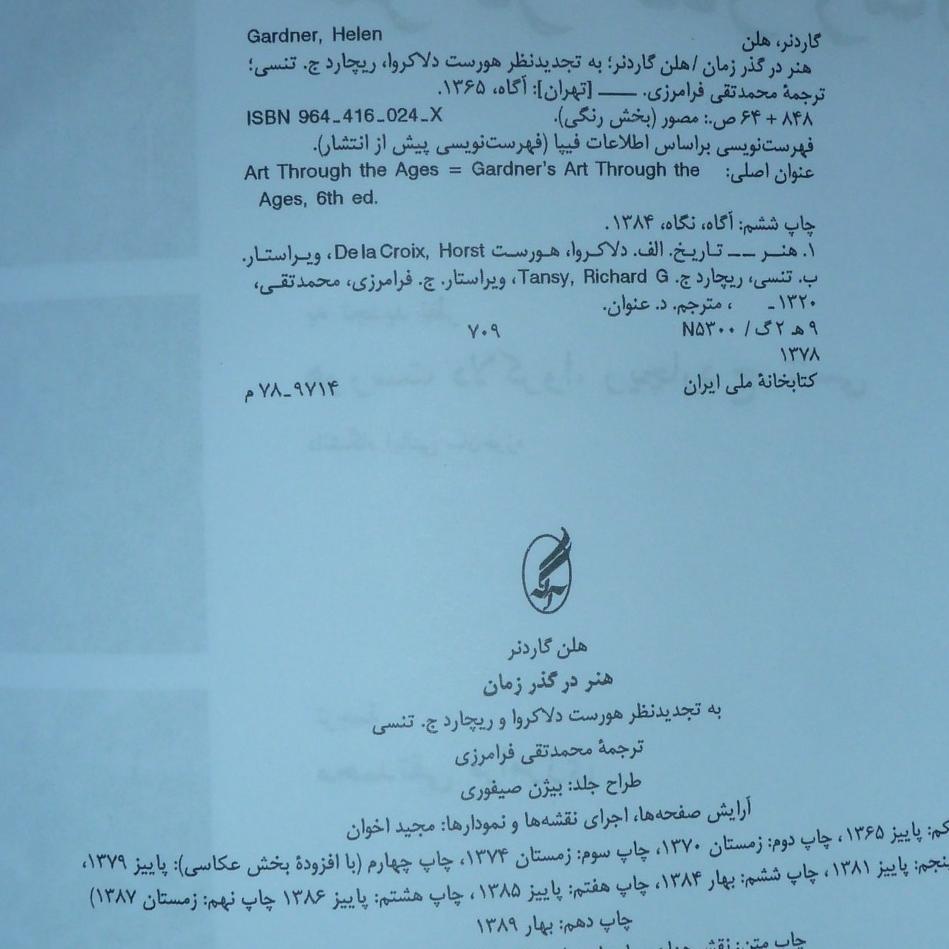 Gardner, Helen گاردنر، هلن
هنر در گذر زمان / هلن گاردنر؛ به تجدیدنظر هورست دلاکروا، ریچارد ج. تنسی؛
ترجمهٔ محمدتقی فرامرزی. ـــ [تهران]: آگاه، ۱۳۶۵.
۸۴۸ + ۶۴ ص.: مصور (بخش رنگی). ISBN 964-416-024-X
فهرست‌نویسی براساس اطلاعات فیپا (فهرست‌نویسی پیش از انتشار).
عنوان اصلی: Art Through the Ages = Gardner's Art Through the
Ages, 6th ed.
چاپ ششم: آگاه، نگاه، ۱۳۸۴.
۱. هنر ــ تاریخ. الف. دلاکروا، هورست De la Croix, Horst، ویراستار.
ب. تنسی، ریچارد ج. Tansy, Richard G، ویراستار. ج. فرامرزی، محمدتقی،
۱۳۲۰ـ ، مترجم. د. عنوان.
۹ هـ ۲ گ / N۵۳۰۰ ۷۰۹
۱۳۷۸
کتابخانهٔ ملی ایران ۹۷۱۴ـ۷۸ م
آگه
هلن گاردنر
هنر در گذر زمان
به تجدیدنظر هورست دلاکروا و ریچارد ج. تنسی
ترجمهٔ محمدتقی فرامرزی
طراح جلد: بیژن صیفوری
آرایش صفحه‌ها، اجرای نقشه‌ها و نمودارها: مجید اخوان
پاییز ۱۳۶۵، چاپ دوم: زمستان ۱۳۷۰، چاپ سوم: زمستان ۱۳۷۴، چاپ چهارم (با افزودهٔ بخش عکاسی): پاییز ۱۳۷۹،
پاییز ۱۳۸۱، چاپ ششم: بهار ۱۳۸۴، چاپ هفتم: پاییز ۱۳۸۵، چاپ هشتم: پاییز ۱۳۸۶ چاپ نهم: زمستان ۱۳۸۷)
چاپ دهم: بهار ۱۳۸۹
چاپ متن: نقش